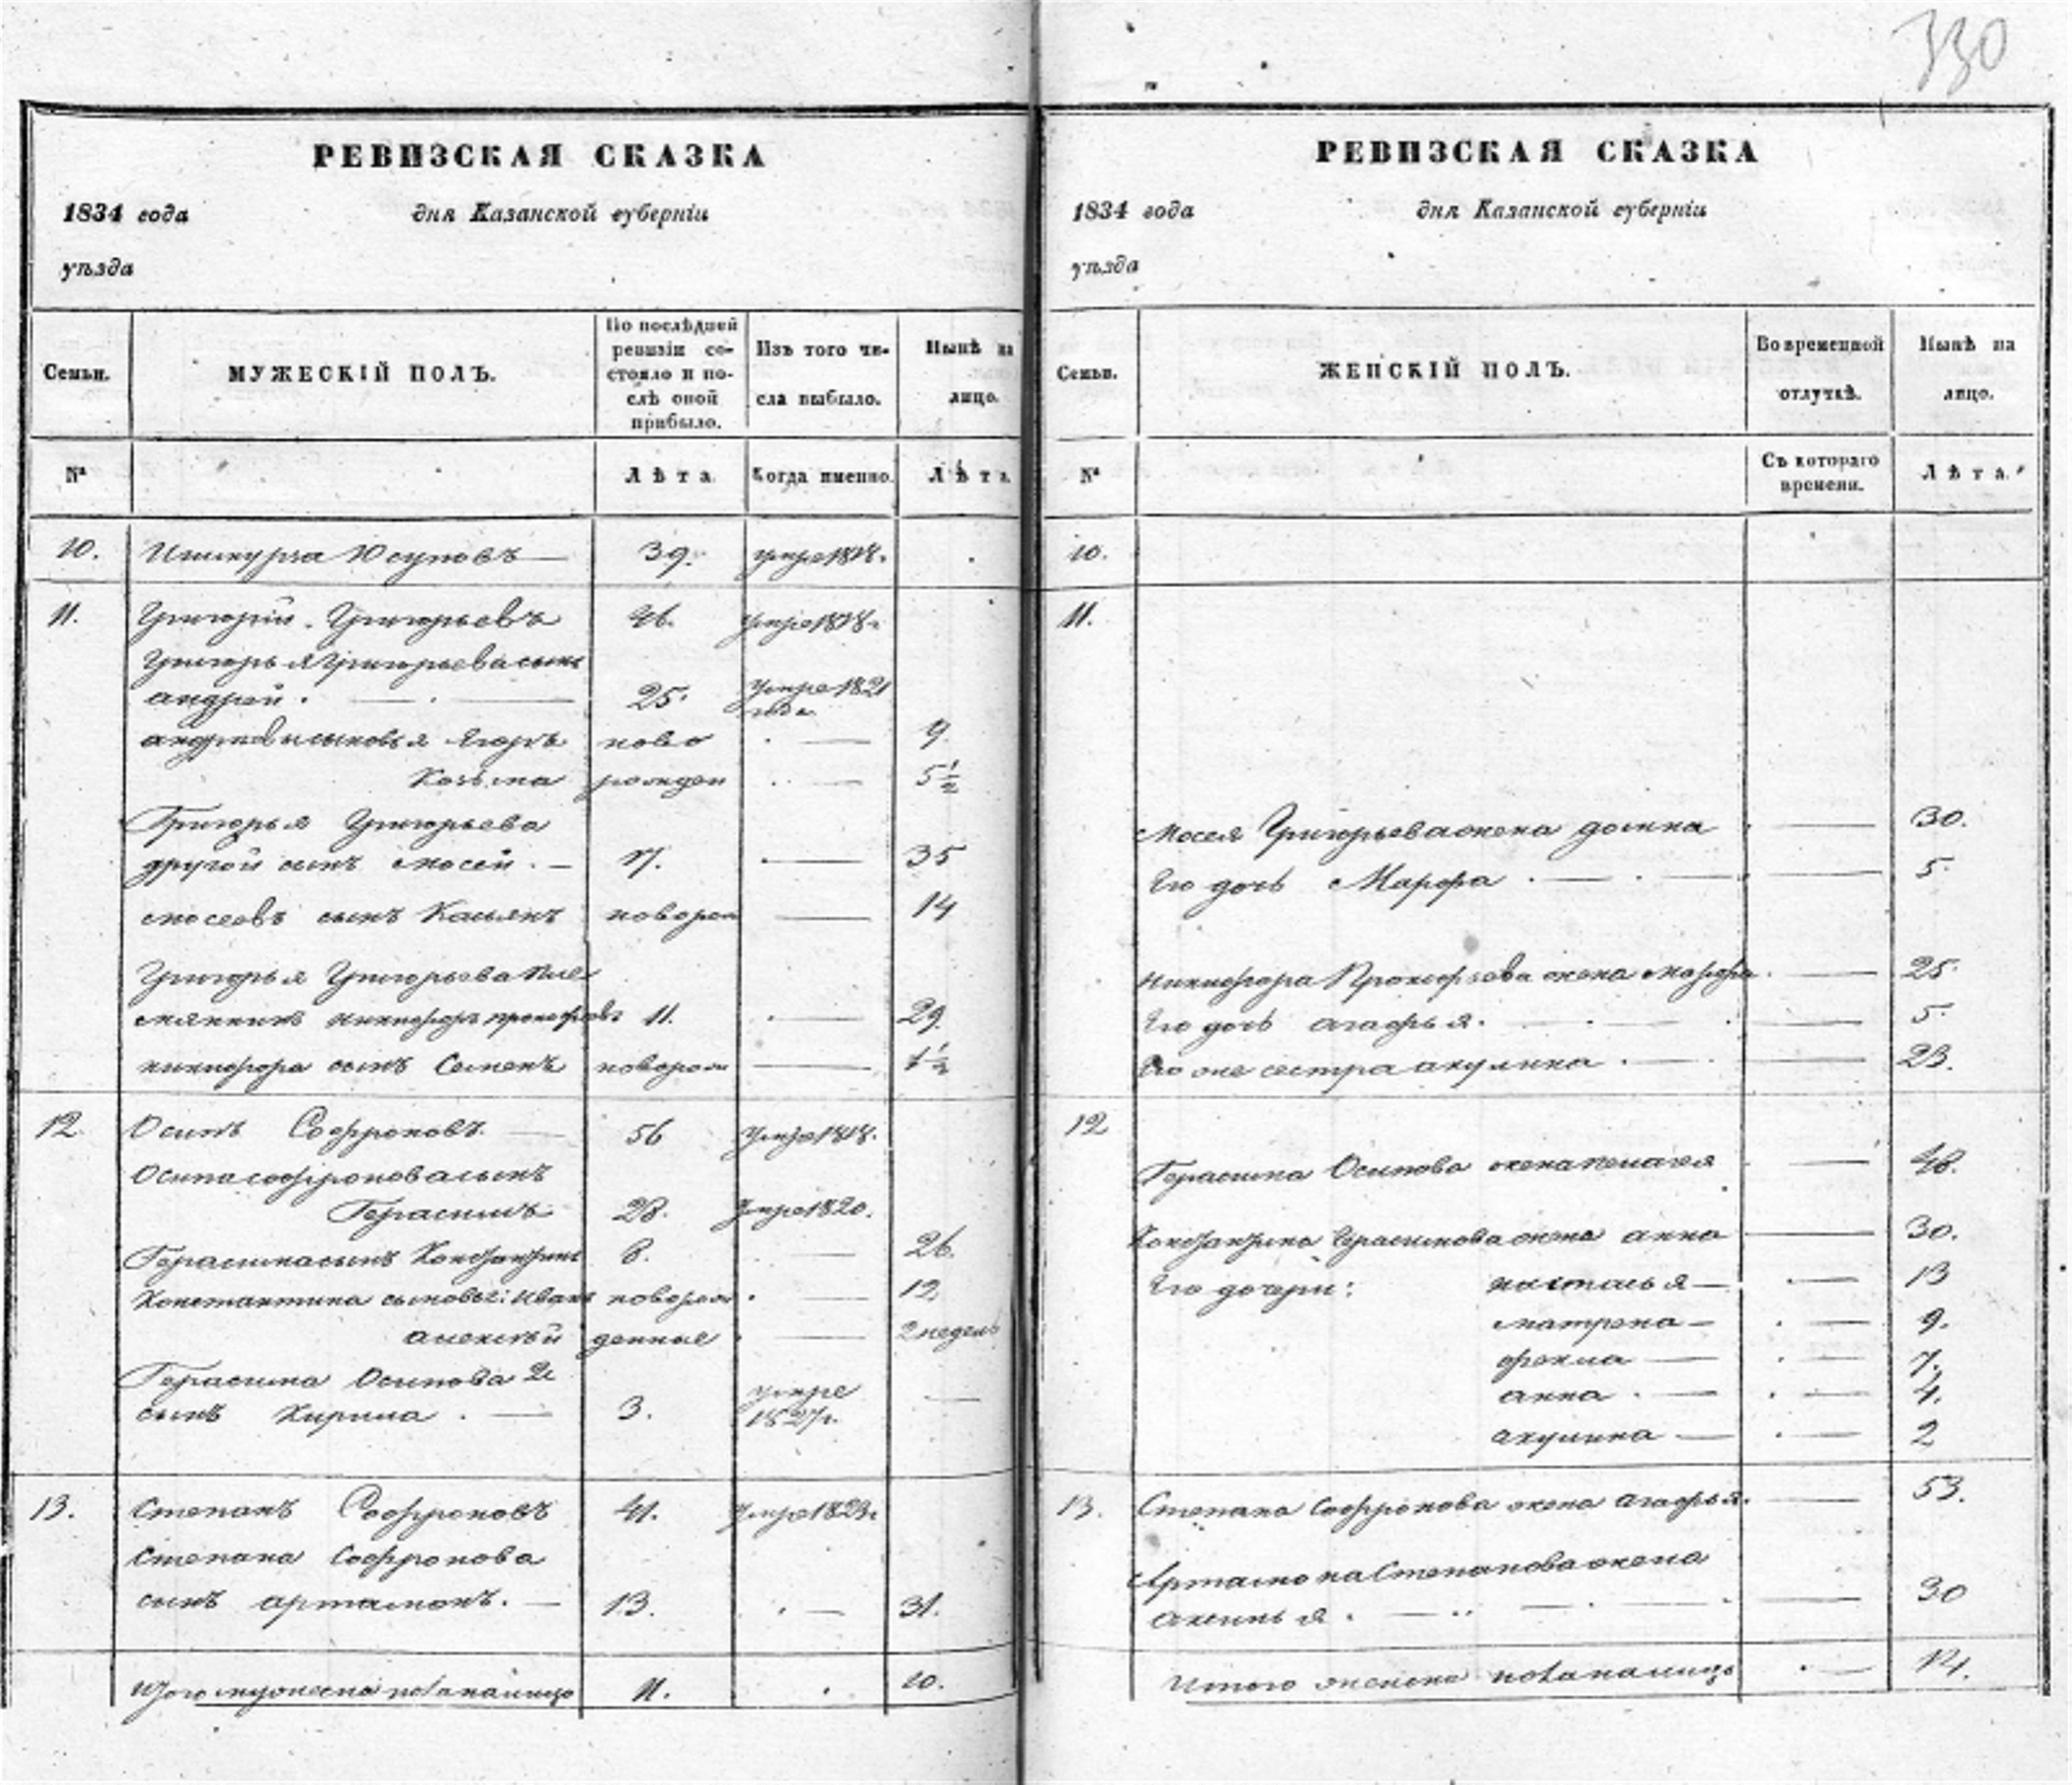 330
РЕВИЗСКАЯ СКАЗКА
1834 года дня Казанской губерніи
уѣзда
Семьи.
МУЖЕСКІЙ ПОЛЪ.
По послѣдней ревизіи состояло и послѣ оной прибыло.
Изъ того числа выбыло.
Нынѣ на лицо.
№
Лѣта.
Когда именно.
Лѣта.
10. Юсуповъ 39. умре 1818.
11. Григорій Григорьевъ 46. умре 1818.
Григорья Григорьева сынъ
андрей. 25. умре 1821
года
андреевы сыновья Егоръ ново 9
Козьма рожден 5 1/2
Григорья Григорьева
другой сынъ Мосей. 17. 35
Мосеевъ сынъ Касьянъ новорож 14
Григорья Григорьева пле
мянникъ никифоръ прокофьевъ 11. 29.
никифора сынъ Семенъ новорож 1 1/2
12. Осипъ Софроновъ. 56 умре 1818.
Осипа софронова сынъ
Герасимъ 28. Умре 1820.
Герасима сынъ Константинъ 8. 26.
Константина сыновья: иванъ новорож 12
алексѣй денные 2 недель
Герасима Осипова 2й
сынъ Кирила. 3. умре
1827г.
13. Степанъ Софроновъ 41. Умре 1823г.
Степана Софронова
сынъ артамонъ. 13. 31.
Итого мужеска пола налицо 11. 10.
РЕВИЗСКАЯ СКАЗКА
1834 года дня Казанской губерніи
уѣзда
Семьи.
ЖЕНСКІЙ ПОЛЪ.
Во временной отлучкѣ.
Нынѣ на лицо.
№
Съ котораго времени.
Лѣта.
10.
11.
Мосея Григорьева жена домна 30.
Его дочь Марфа. 5.
никифора Прокофьева жена марфа. 25.
Его дочь агафья. 5.
Его же сестра акулина. 23.
12
Герасима Осипова жена пелагея 48.
Константина Герасимова жена анна 30.
Его дочери: настасья 13
матрена 9.
фекла 7.
анна. 4.
акулина 2
13. Степана Софронова жена агафья. 53.
Артамона Степанова жена
аксинья. 30
Итого женска пола налицо 14.